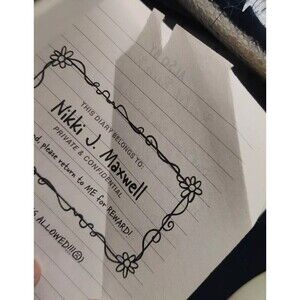 THIS DIARY BELONGS TO:
Nikki J. Maxwell
PRIVATE & CONFIDENTIAL
, please return to ME for REWARD!
ALLOWED!!!☹)